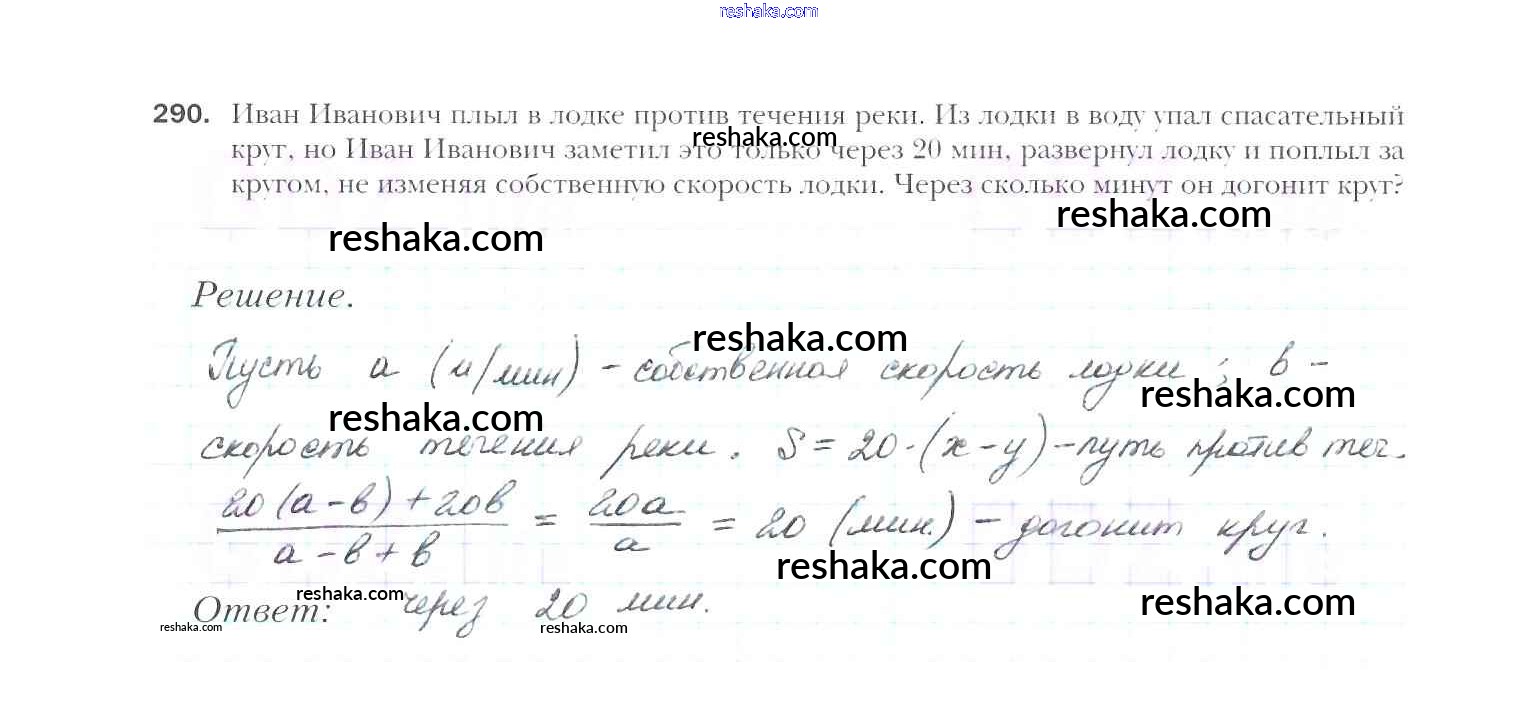 reshaka.com
290. Иван Иванович плыл в лодке против течения реки. Из лодки в воду упал спасательный
reshaka.com
круг, но Иван Иванович заметил это только через 20 мин, развернул лодку и поплыл за
кругом, не изменяя собственную скорость лодки. Через сколько минут он догонит круг?
reshaka.com
reshaka.com
Решение.
reshaka.com
Пусть a (м/мин) - собственная скорость лодки ; в -
reshaka.com
reshaka.com
скорость течения реки. S = 20·(x-y) - путь против теч.
20(a-в)+20в / a-в+в = 20a / a = 20 (мин.) - догонит круг.
reshaka.com
reshaka.com
reshaka.com
Ответ: через 20 мин.
reshaka.com
reshaka.com